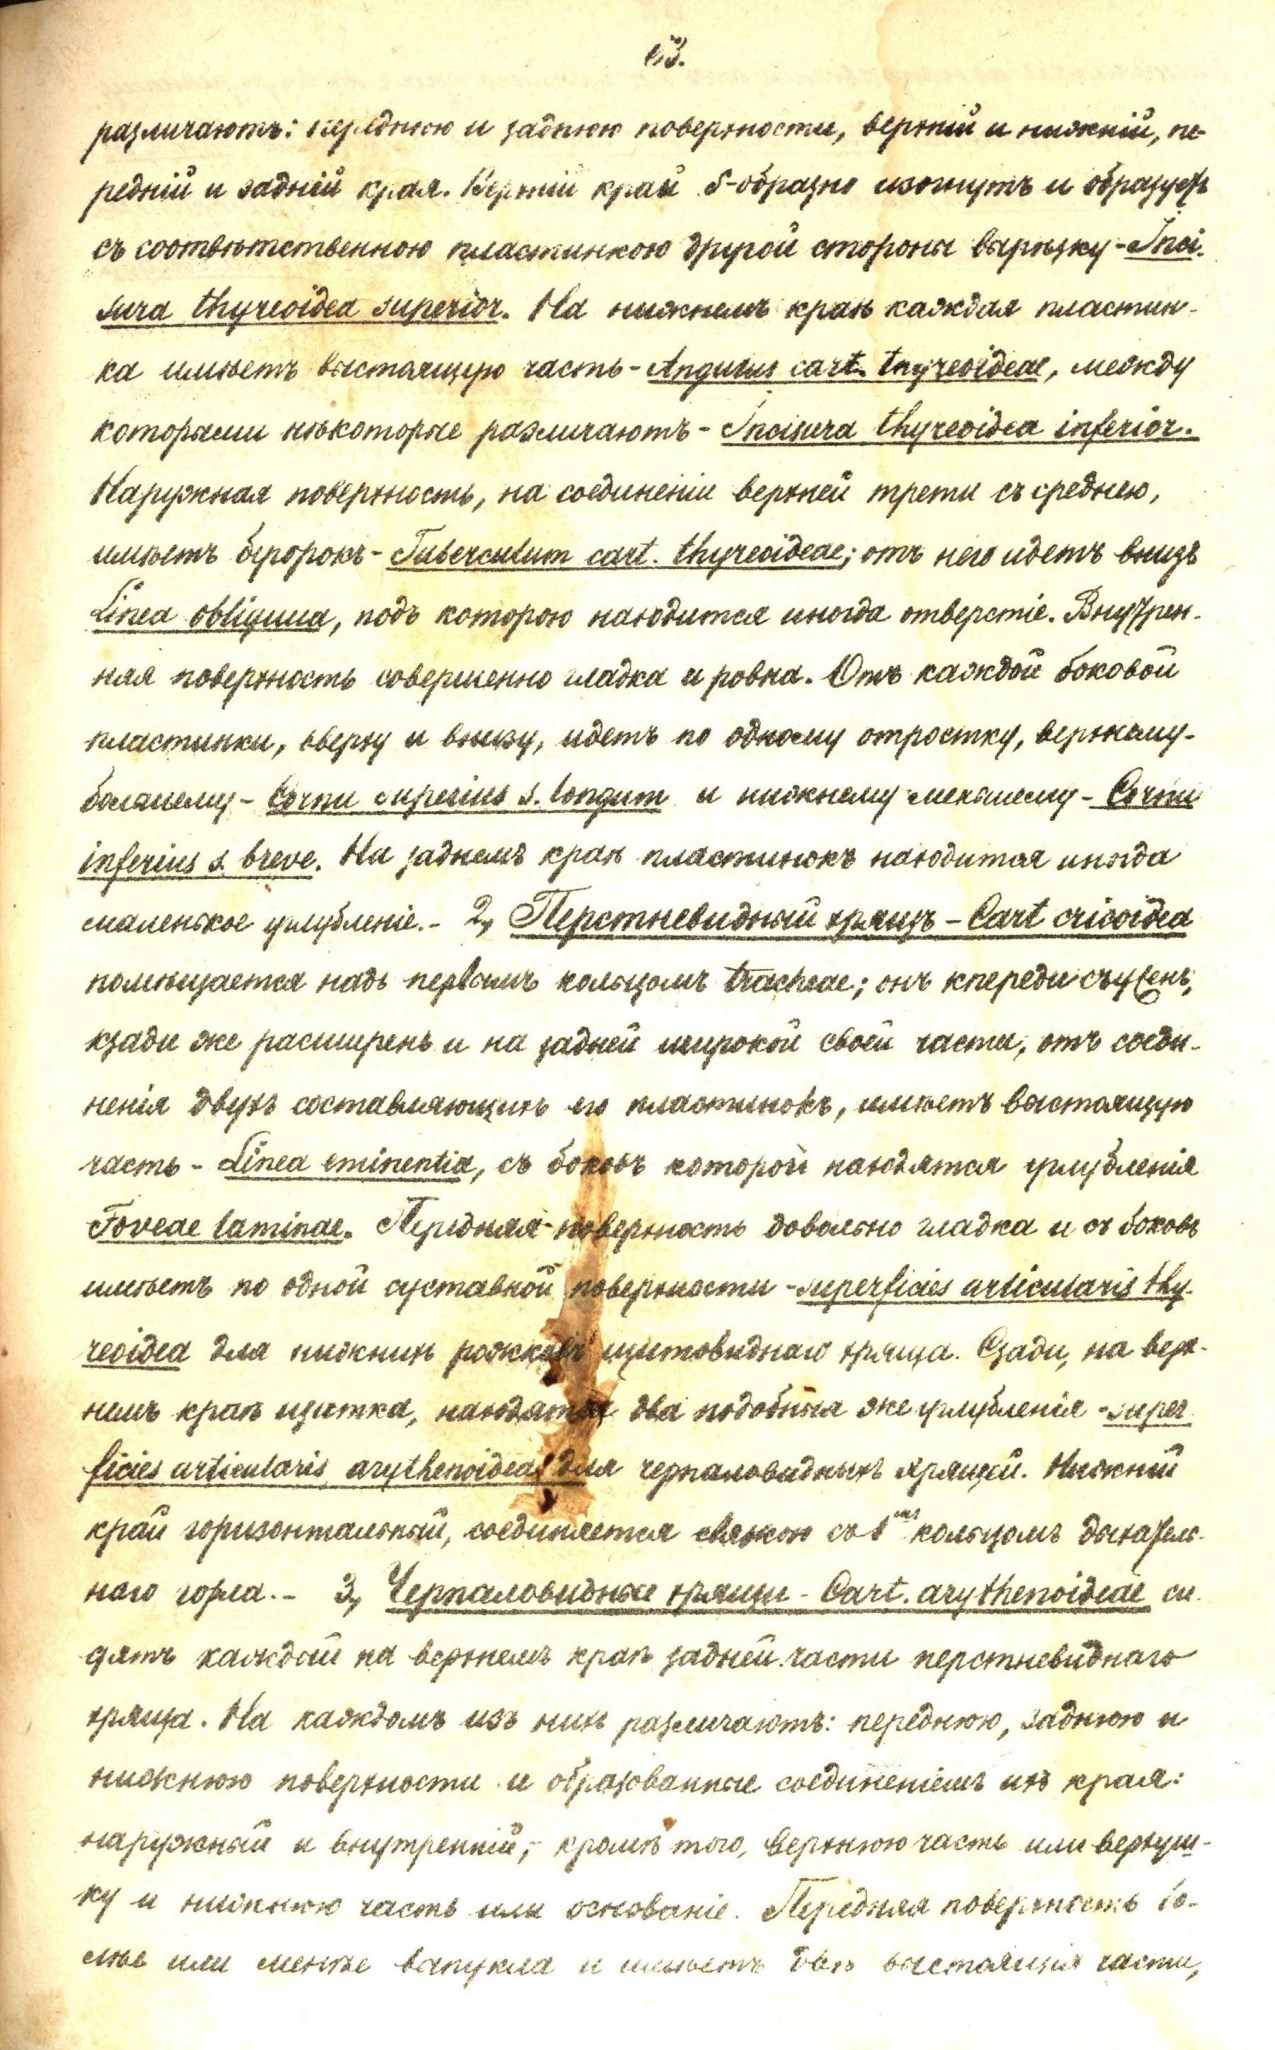 различаютъ: переднюю и заднюю поверхности, верхній и нижній, пе-
редній и задній края. Верхній край S-образно изогнутъ и образуетъ
съ соотвѣтственною пластинкою другой стороны вырѣзку - Inci-
sura thyreoidea superior. На нижнемъ краѣ каждая пластин-
ка имѣетъ выстоящую часть - Angulus cart. thyreoideae, между
которыми нѣкоторые различаютъ - Incisura thyreoidea inferior.
Наружная поверхность, на соединеніи верхней трети съ среднею,
имѣетъ бугорокъ - Tuberculum cart. thyreoideae; отъ него идетъ внизъ
Linea obliqua, подъ которою находится иногда отверстіе. Внутрен-
няя поверхность совершенно гладка и ровна. Отъ каждой боковой
пластинки, вверху и внизу, идетъ по одному отростку, верхнему-
большему - Cornu superius s. longum и нижнему меньшему - Cornu
inferius s. breve. На заднемъ краѣ пластинокъ находится иногда
маленькое углубленіе. - 2, Перстневидный хрящъ - Cart cricoidea
помѣщается надъ первымъ кольцомъ tracheae; онъ кпереди съуженъ,
кзади же расширенъ и на задней широкой своей части, отъ соеди-
ненія двухъ составляющихъ его пластинокъ, имѣетъ выстоящую
часть - Linea eminentia, съ боковъ которой находятся углубленія
Foveae laminae. Передняя поверхность довольно гладка и съ боковъ
имѣетъ по одной суставной поверхности - superficies articularis thy-
reoidea для нижнихъ рожковъ щитовиднаго хряща. Сзади, на верх-
немъ краѣ щитка, находятся два подобныя же углубленія - super-
ficies articularis arythenoidea для черпаловидныхъ хрящей. Нижній
край горизонтальный, соединяется связкою съ 1ымъ кольцомъ дыхатель-
наго горла. - 3, Черпаловидные хрящи - Cart. arythenoideae си-
дятъ каждый на верхнемъ краѣ задней части перстневиднаго
хряща. На каждомъ изъ нихъ различаютъ: переднюю, заднюю и
нижнюю поверхности и образованные соединеніемъ ихъ края:
наружный и внутренній; кромѣ того, верхнюю часть или верхуш-
ку и нижнюю часть или основаніе. Передняя поверхность бо-
лѣе или менѣе выпукла и имѣетъ двѣ выстоящія части,